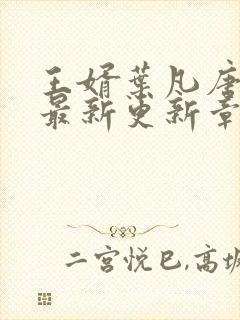 王婿葉凡唐
最新更新章
二宫悦巳,高坂